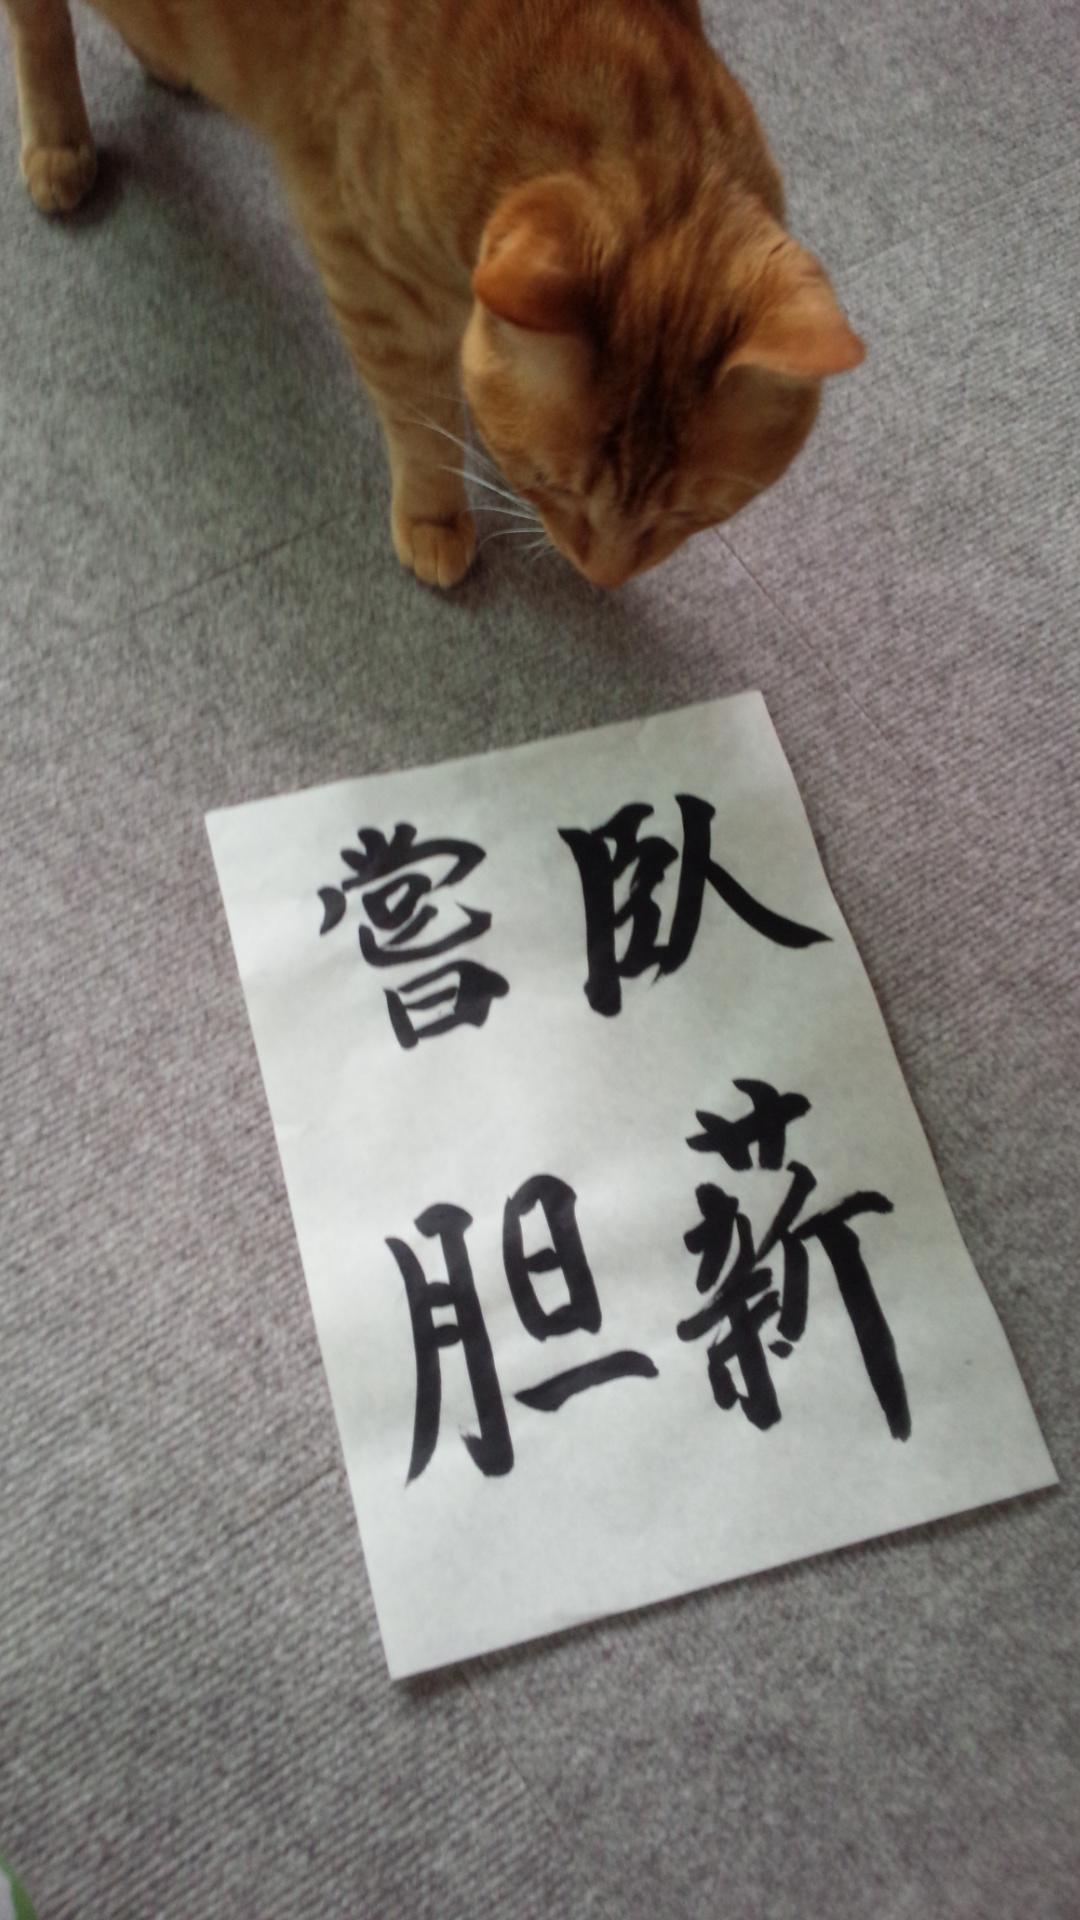 臥薪
嘗胆